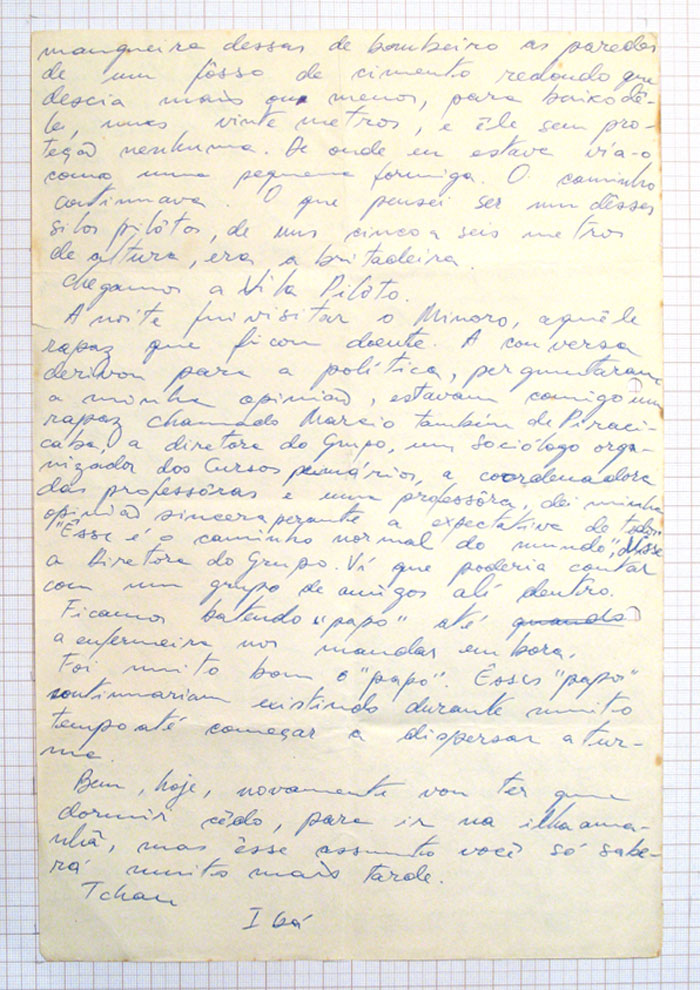 mangueira dessas de bombeiro as paredes
de um fôsso de cimento redondo que
descia mais ou menos, para baixo dê-
le, uns vinte metros, e êle sem pro-
teção nenhuma. De onde eu estava via-o
como uma pequena formiga. O caminho
continuava. O que pensei ser um dêsses
silos pilôtos, de uns cinco a seis metros
de altura, era a britadeira.
Chegamos a Vila Pilôto.
A noite fui visitar o Minoro, aquêle
rapaz que ficou doente. A conversa
derivou para a política, perguntaram
a minha opinião, estavam comigo um
rapaz chamado Marcio também de Piraci-
caba, a diretora do Grupo, um sociólogo orga-
nizador dos Cursos primários, a coordenadora
das professôras e uma professôra, dei minha
opinião sincera perante a expectativa de todos
"Êsse é o caminho normal do mundo", disse
a Diretora do Grupo. Vi que poderia contar
com um grupo de amigos ali dentro.
Ficamos batendo "papo" até quando
a enfermeira nos mandar embora.
Foi muito bom o "papo". Êsses "papo"
continuariam existindo durante muito
tempo até começar a dispersar a tur-
ma.
Bem, hoje, novamente vou ter que
dormir cêdo, para ir na ilha ama-
nhã, mas êsse assunto você só sabe-
rá muito mais tarde.
Tchau
Ibá